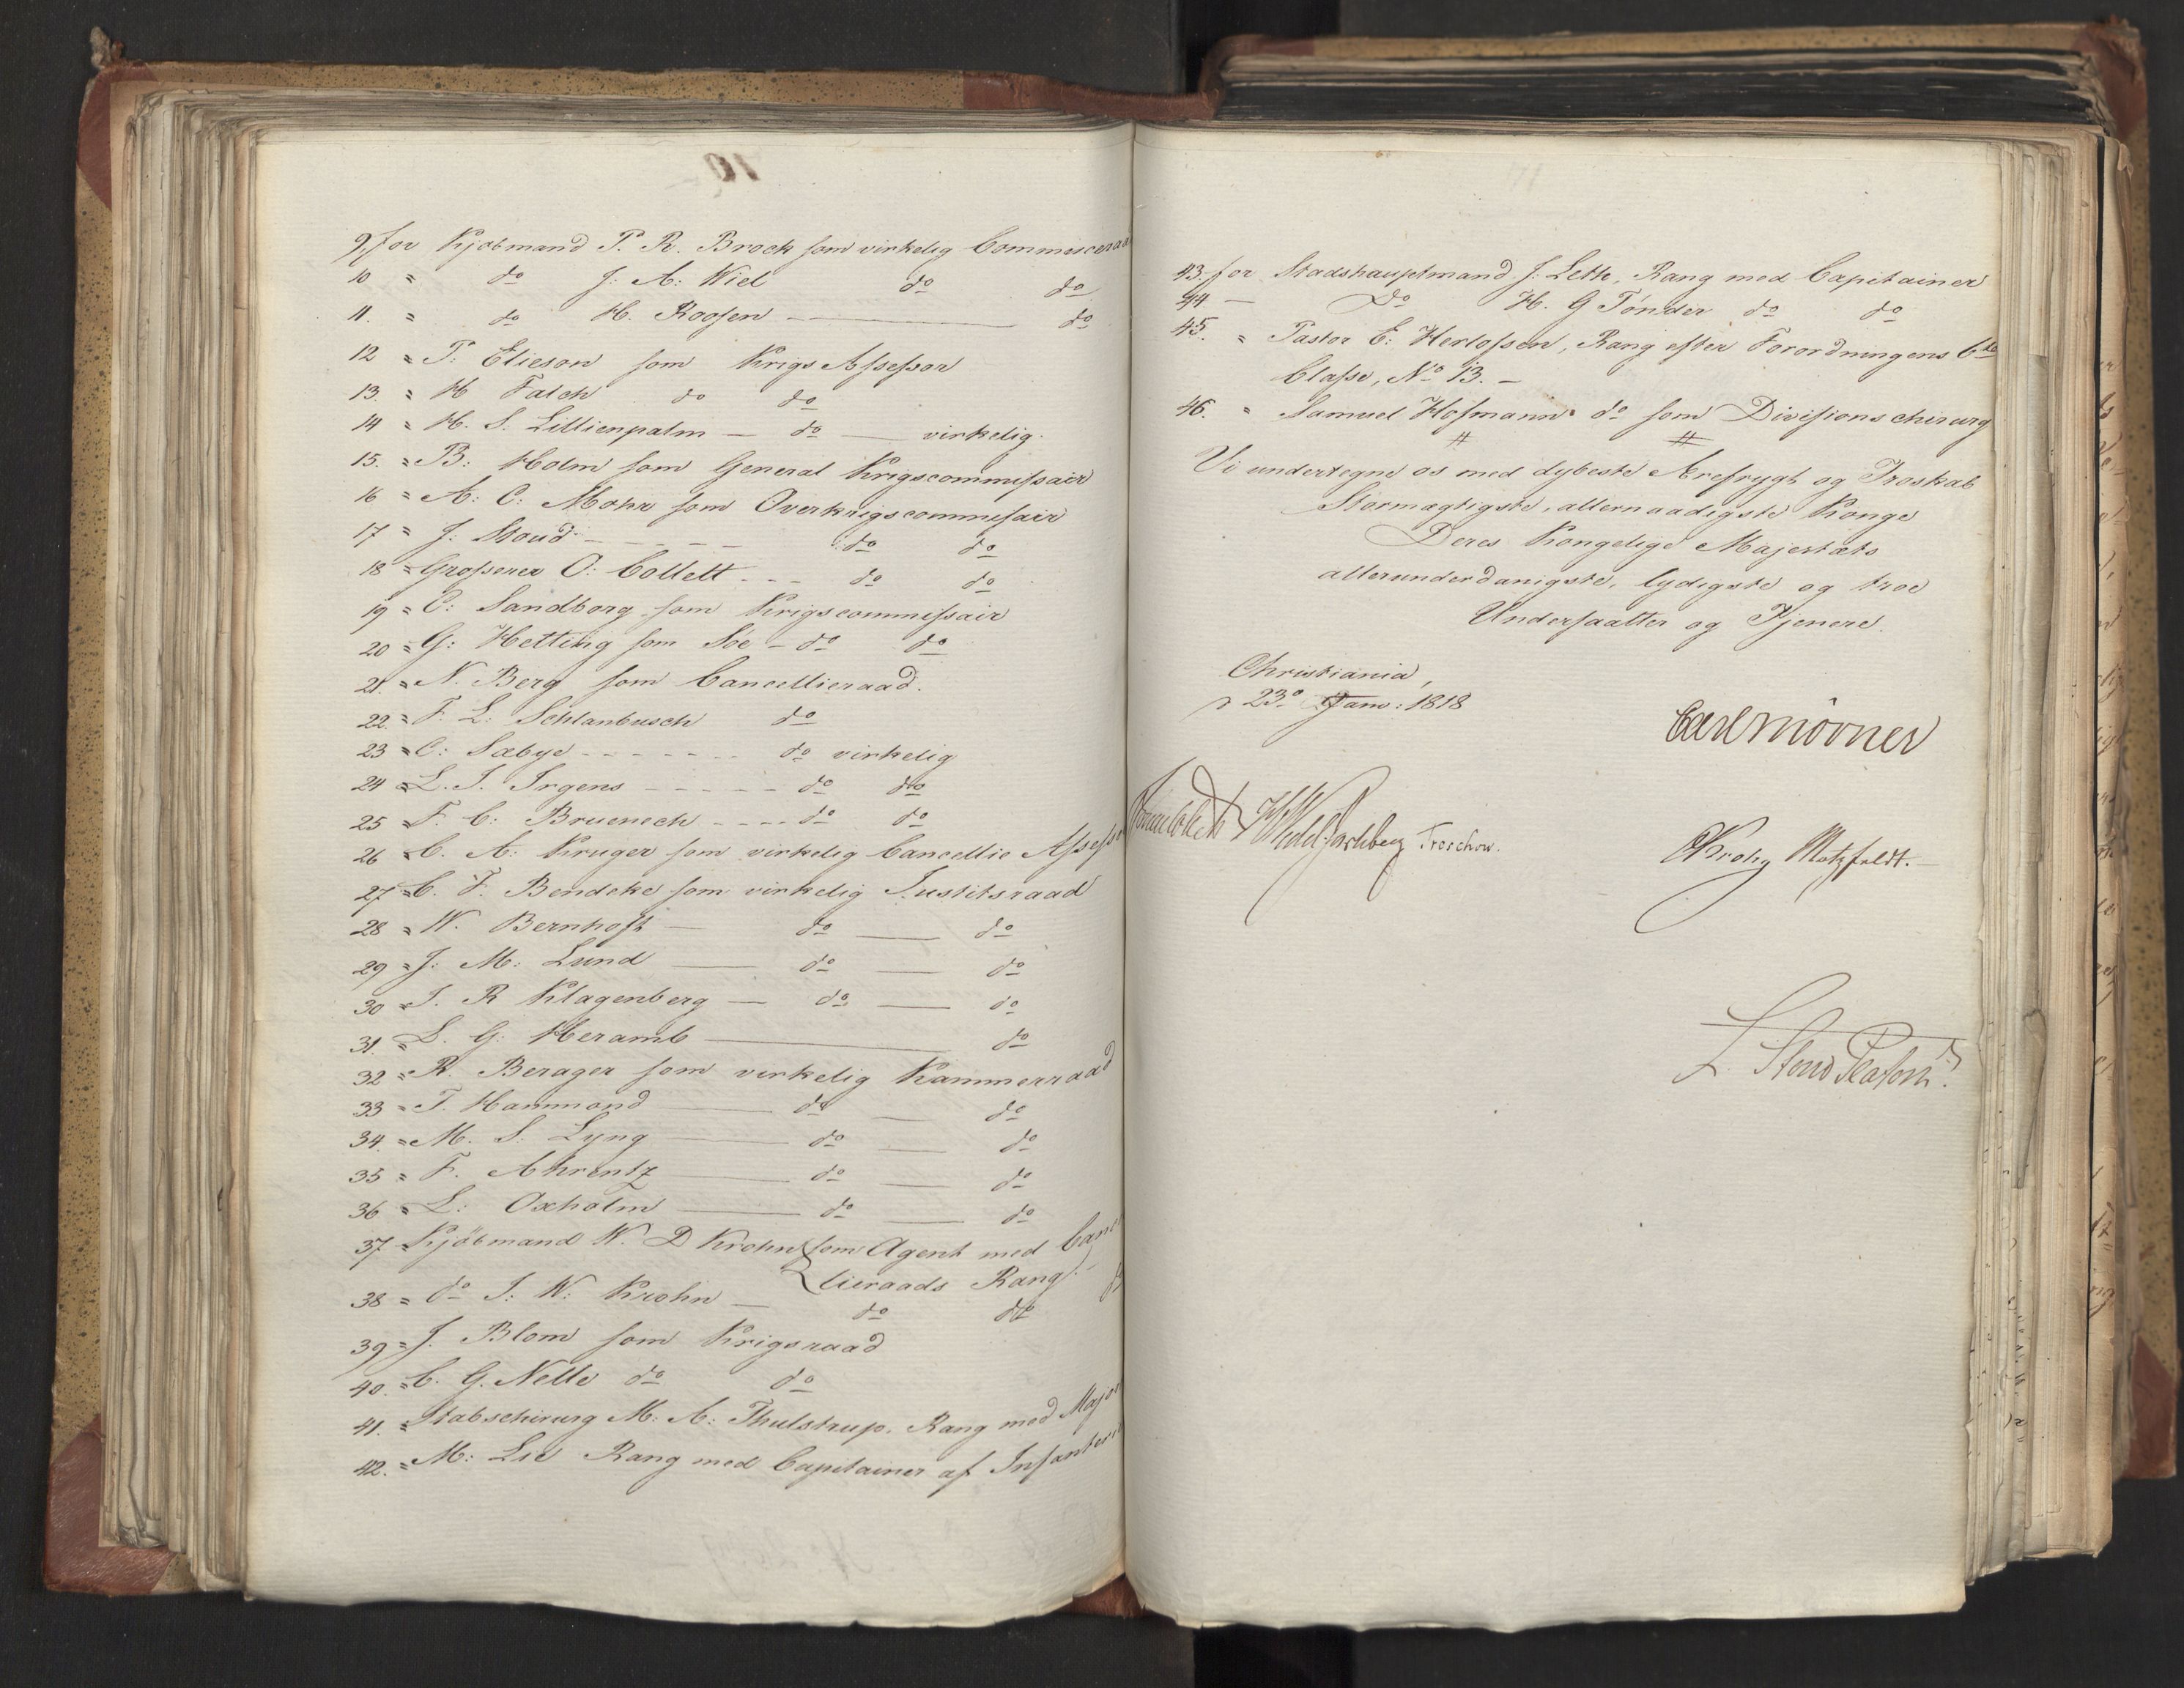 9, for Kjøbmand P. R. Brock som virkelig Commerceraa
10 = do J: A: Wiel do do
11. = do H. Roosen — do
12 = P: Elieson som Krigs Assessor
13. = H Falch do do
14 = H. S. Lillienpalm — do — virkelig.
15. = B: Holm som General Krigscommissair
16 = A: C: Mohr som Overkrigscommisair
17 = J: Stoud - - - - do do
18 = Grosserer O: Collett - - - do do
19 = C: Sandborg som Krigscommissair
20 = G: Hetting som Søe - do do
21. = N. Berg som Cancellieraad.
22. = F. L: Schlanbusch do
23 = C: Sæbye - - - - - - do virkelig
24 = L. J. Irgens - - - - - do do
25 = F. C: Bruenech - - - - do do
26 = C. A: Kruger som virkelig Cancellie Assess
27 = C. F. Bendeke som virkelig Justitsraad
28 = W. Bernhoft — do — do
29 = J: M: Lund — do — do
30 = J. R Klagenberg — do — do
31. = D. G: Heramb — do
32 = R. Berager som virkelig Kammerraad
33 = T. Hammond — do — do
34. = M. S. Lyng — do — do
35 = F. Ahrentz — do — do
36 = L: Oxholm — do — do
37 = Kjøbmand W. D Krohn som Agent med Cancel
lieraads Rang.
38 = do J: W: Krohn — do do
39 = J. Blom som Krigsraad
40. = C. G. Nelle do do
41. = Stabschirurg M: A: Thulstrup, Rang med Major
42. = M: Lie Rang med Capitainer af Infanteri
43 for Stadshauptmand J: Leth, Rang med Capitainer
44 — Do H. G Tønder do do
45. = Pastor E: Herlofsen, Rang efter Forordningens 6te
Classe, No 13. —
46. = Samuel Hofmann do som Divisionschirurg
Vi undertegne os med dybeste Ærefrygt og Troskab
Stormægtigste, allernaadigste Konge
Deres Kongelige Majestæts
allerunderdanigste, lydigste og troe
Undersaatter og Tjenere.
Christiania,
d 23o Janv: 1818
Carl Mörner
Sommerhielm WedelJarlsberg Treschow.
CKrohg Motzfeldt.
L. Stoud Platou